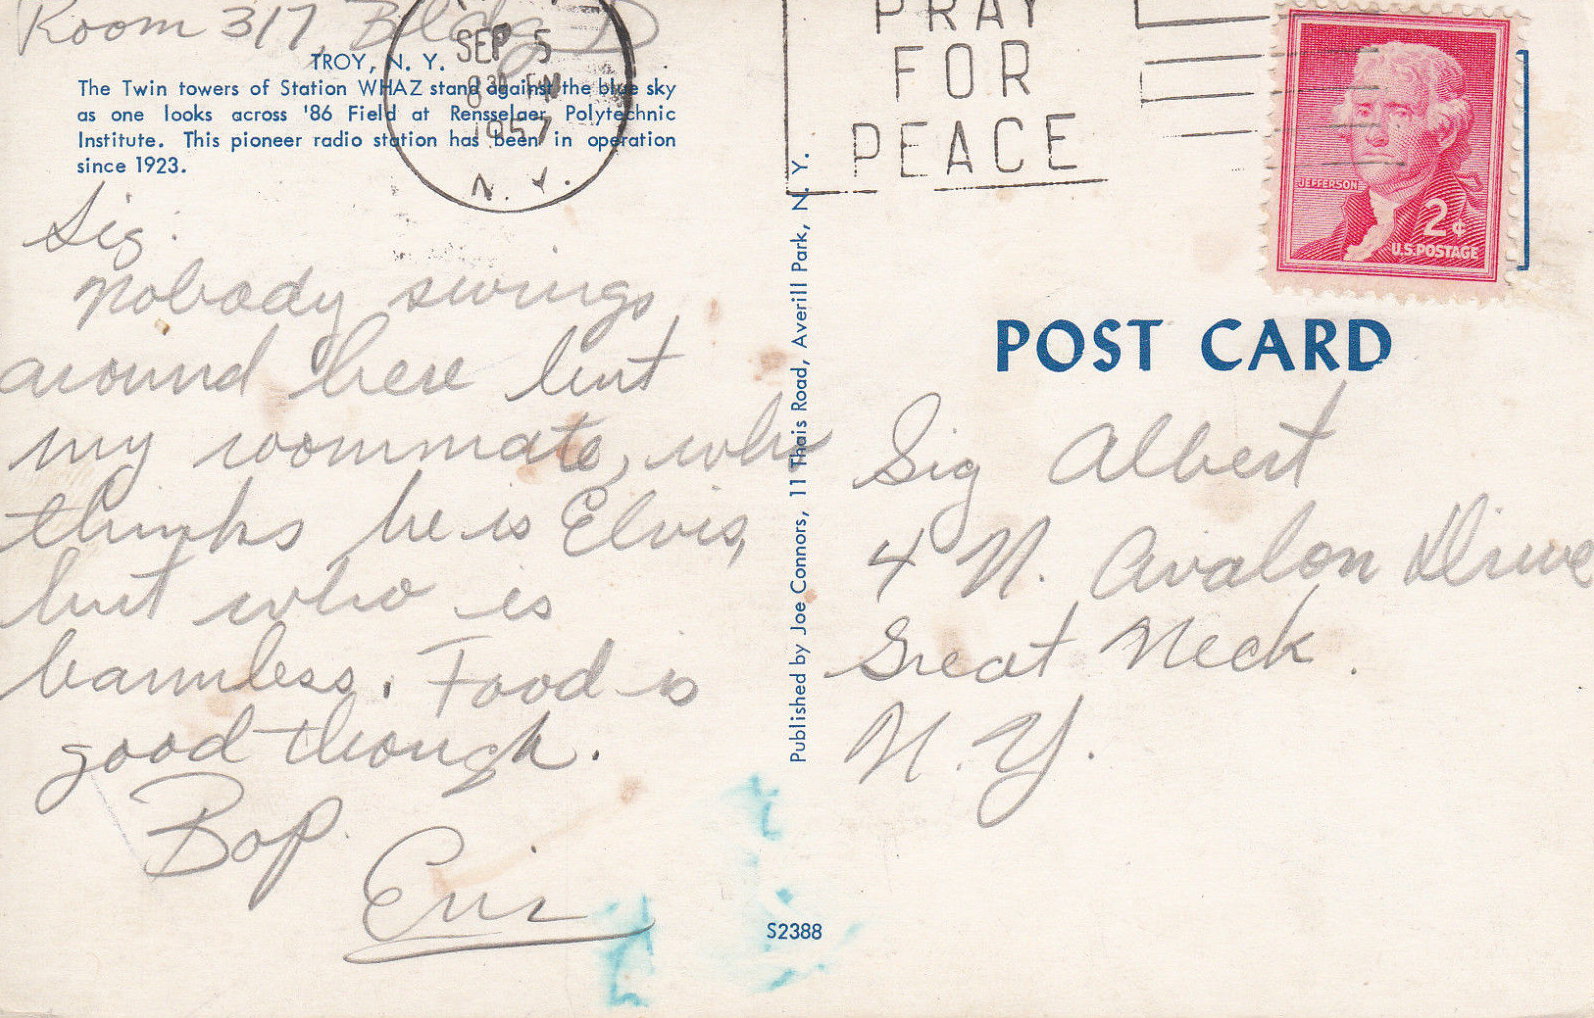 Room 317, Bldg D
TROY, N. Y.
The Twin towers of Station WHAZ stand against the blue sky
as one looks across '86 Field at Rensselaer Polytechnic
Institute. This pioneer radio station has been in operation
since 1923.
SEP 5
8 30 PM
1957
N. Y.
PRAY
FOR
PEACE
JEFFERSON
2¢
U.S. POSTAGE
Sig:
nobody swings
around here but
my roommate, who
thinks he is Elvis,
but who is
harmless. Food is
good though.
Bop.
Eric
Published by Joe Connors, 11 Thais Road, Averill Park, N. Y.
S2388
POST CARD
Sig Albert
4 N. Avalon Drive
Great Neck.
N. Y.